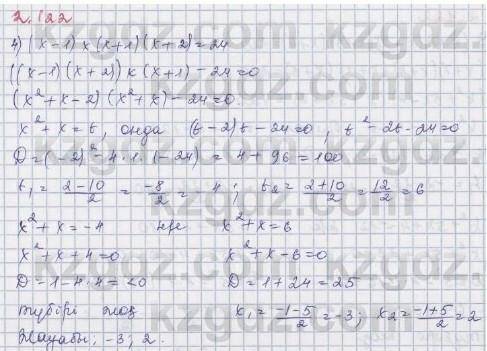 2.122
4) (x-1)x(x+1)(x+2)=24
((x-1)(x+2))x(x+1)-24=0
(x²+x-2)(x²+x)-24=0.
x²+x=t, онда (t-2)t-24=0, t²-2t-24=0
D=(-2)²-4·1·(-24)=4+96=100
t₁=(2-10)/2=-8/2=-4; t₂=(2+10)/2=12/2=6
x²+x=-4 не x²+x=6
x²+x+4=0 x²+x-6=0
D=1-4·4=<0 D=1+24=25
түбірі жоқ x₁=(-1-5)/2=-3; x₂=(-1+5)/2=2
Жауабы: -3; 2.
kzgdz.com